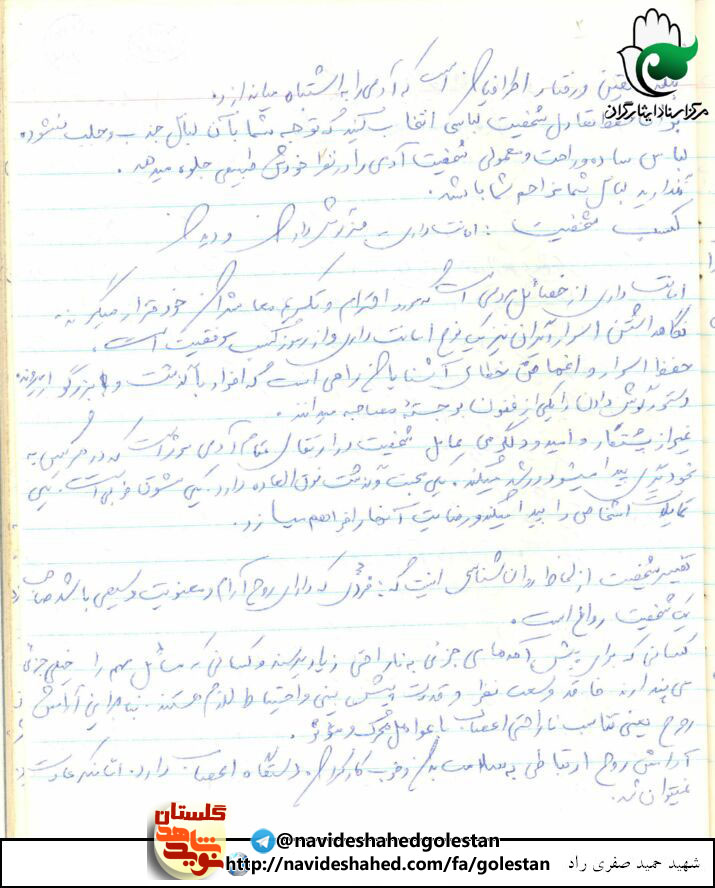 ۲
مرکز اسناد ایثارگران
تلقین و رفتار اطرافیان است که آدمی را به اشتباه می اندازد.
حفظ تعادل شخصیت لباسی انتخاب کنید که توجه شما با آن لباس جذب و جلب نشود
لباس ساده و راحت و معمولی شخصیت آدمی را در نظر خودش طبیعی جلوه میدهد.
نگذارید لباس شما مزاحم شما باشد.
کسب شخصیت : امانتداری
امانتداری از خصائل است که مورد احترام و تکریم خود قرار میگیرند
نگاهداشتن اسرار دیگران نیز یک نوع امانت داری و از رموز کسب موفقیت است.
حفظ اسرار و اغماض خطای آشنایان راهی است که افراد با گذشت و بزرگوار
گوش دادن را یکی از فنون برجسته مصاحبه میدانند.
غیر از پشتکار و امید و دلگرمی عامل شخصیت در ارتقای مقام آدمی مؤثر است که در هر کس به
خود پیدا میشود و رشد میکند. یکی محبت و گذشت فوق العاده دارد. یکی شوق است. یکی
اشخاص را پیدا میکند و رضایت آنها را فراهم میسازد.
تفسیر شخصیت از لحاظ روان شناسی اینست که: فردی که دارای روح آرام و معنویت وسیعی باشد صاحب
یک شخصیت است.
کسانی که برای پیش آمدهای جزئی به ناراحتی زیاد میرسند و کسانی که مسائل مهم را خیلی جزئی
می پندارند فاقد وسعت نظر و قدرت پیش بینی و احتیاط لازم هستند. بنابراین آرامش
روح یعنی تناسب ناراحتی اعصاب با عوامل محرک و مؤثر.
آرامش روح ارتباطی به سلامت بدن و خوب کار کردن دستگاه اعصاب دارد.
نمیتوان شد.
گلستان
نوید شاهد
@navideshahedgolestan
http://navideshahed.com/fa/golestan
شهید حمید صفری راد